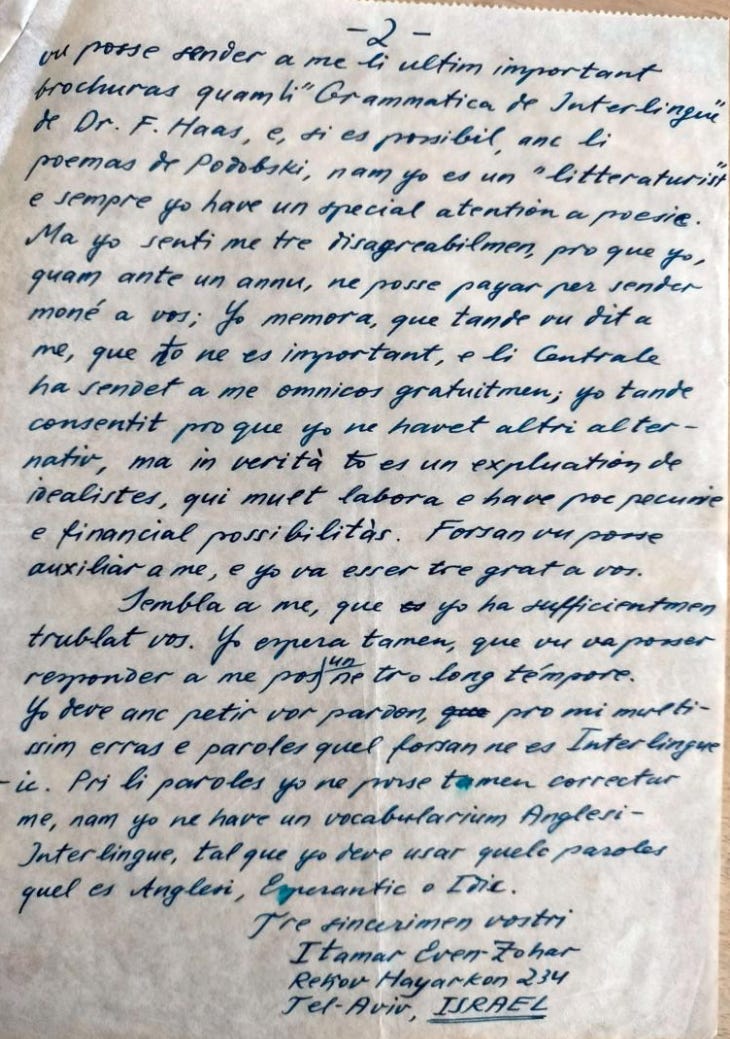 -2-
vu posse sender a me li ultim important
brochuras quam li "Grammatica de Interlingue"
de Dr. F. Haas, e, si es possibil, anc li
poemas de Podobski, nam yo es un "litteraturist"
e sempre yo have un special atention a poesie.
Ma yo senti me tre disagreabilmen, pro que yo,
quam ante un annu, ne posse payar per sender
moné a vos; Yo memora, que tande vu dit a
me, que to ne es important, e li Centrale
ha sendet a me omnicos gratuitmen; yo tande
consentit pro que yo ne havet altri alter-
nativ, ma in verità to es un expluation de
idealistes, qui mult labora e have poc pecunie
e financial possibilitàs. Forsan vu posse
auxiliar a me, e yo va esser tre grat a vos.
Sembla a me, que yo ha sufficientmen
trublat vos. Yo espera tamen, que vu va posser
responder a me pos un ne tro long témpore.
Yo deve anc petir vor pardon, pro mi multi-
ssim erras e paroles quel forsan ne es Interlingue
-ic. Pri li paroles yo ne posse tamen correctar
me, nam yo ne have un vocabularium Anglesi-
Interlingue, tal que yo deve usar quelc paroles
quel es Anglesi, Esperantic o Idic.
Tre sincerimen vostri
Itamar Even-Zohar
Rehov Hayarkon 234
Tel-Aviv, ISRAEL